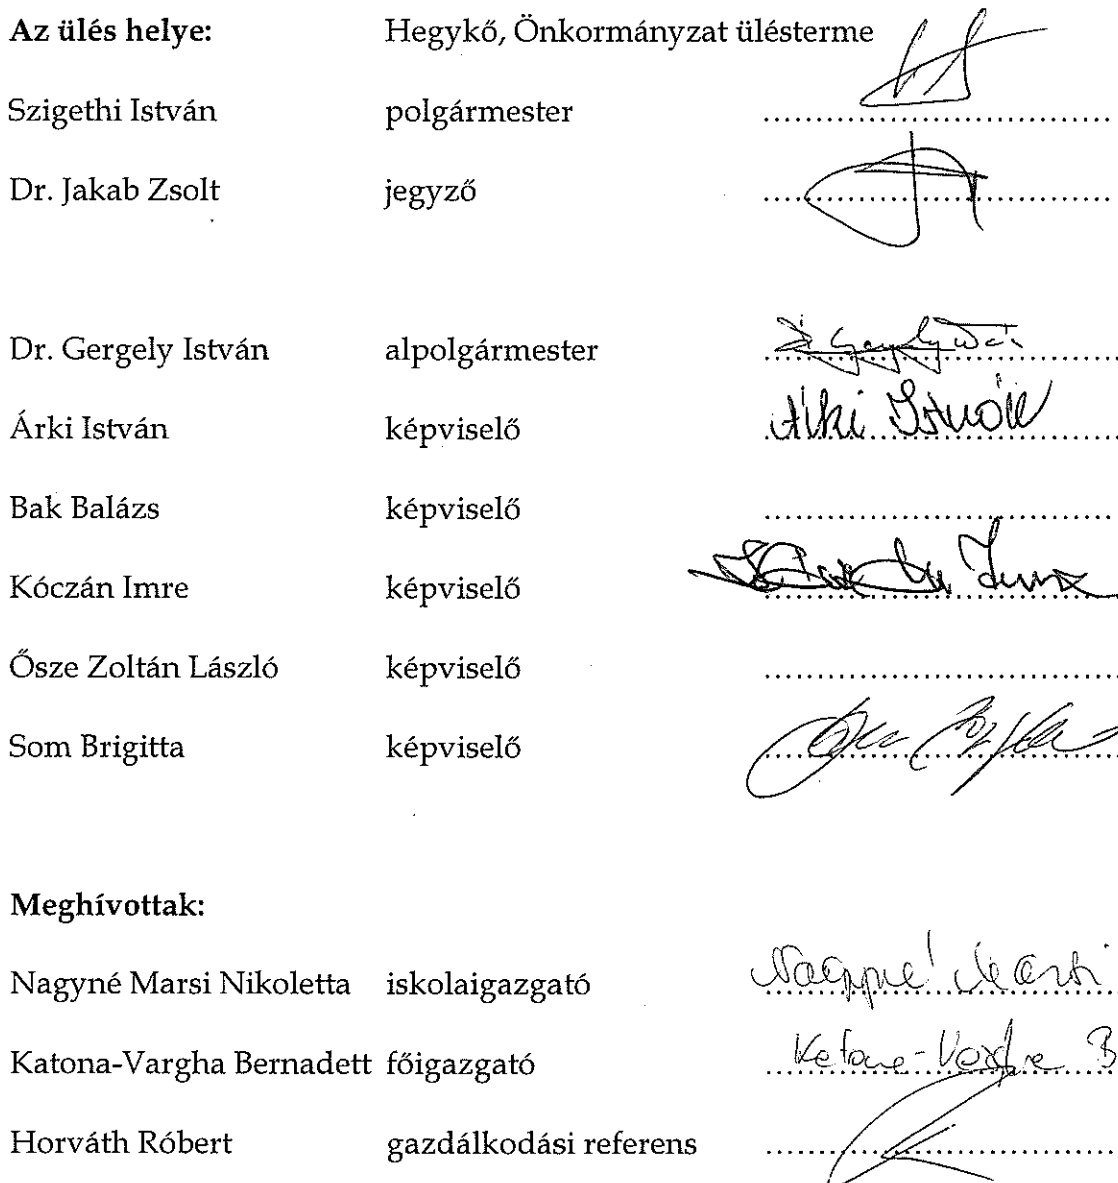 Az ülés helye: Hegykő, Önkormányzat ülésterme
Szigethi István polgármester ..................................
Dr. Jakab Zsolt jegyző ..................................
Dr. Gergely István alpolgármester Dr Gergely István
Árki István képviselő Árki István
Bak Balázs képviselő ..................................
Kóczán Imre képviselő Kóczán Imre
Ősze Zoltán László képviselő ..................................
Som Brigitta képviselő Som Brigitta
Meghívottak:
Nagyné Marsi Nikoletta iskolaigazgató Nagyné Marsi
Katona-Vargha Bernadett főigazgató Katona-Vargha B
Horváth Róbert gazdálkodási referens ..................................